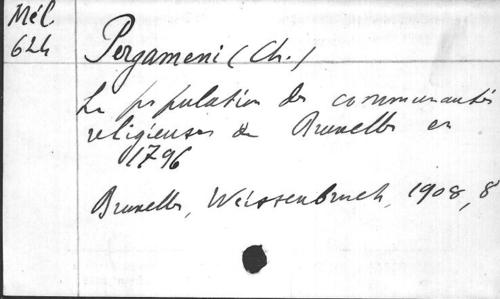 Mél.
624
Pergameni (Ch.)
La population des communautés
religieuses de Bruxelles en
1796
Bruxelles, Weissenbruch, 1908, 8°